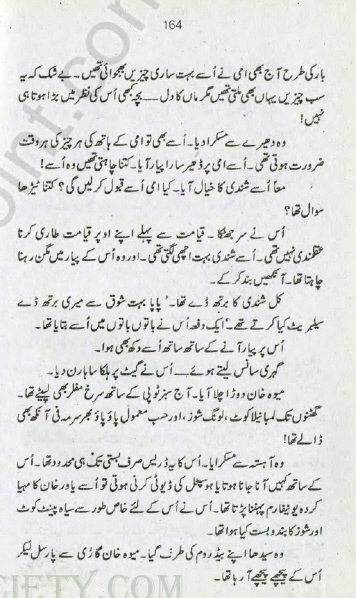 164
بار کی طرح آج بھی امی نے اُسے بہت ساری چیزیں بھجوائی تھیں۔ بے شک کہ یہ
سب چیزیں یہاں بھی ملتی تھیں مگر ماں کا دل ــــ بچہ بھی اُس کی نظر میں بڑا ہوتا ہی
نہیں!
وہ دھیرے سے مسکرا دیا۔ اُسے بھی تو امی کے ہاتھ کی ہر چیز کی ہر وقت
ضرورت ہوتی تھی۔ اُسے امی پر ڈھیر سارا پیار آیا۔ کتنا چاہتی تھیں وہ اُسے!
معاً اُسے شندی کا خیال آیا۔ کیا امی اُسے قبول کر لیں گی؟ کتنا ٹیڑھا
سوال تھا؟
اُس نے سر جھٹکا۔ قیامت سے پہلے اپنے اوپر قیامت طاری کرنا
عقلمندی نہیں تھی۔ اُسے شندی بہت اچھی لگتی تھی۔ اور وہ اُس کے پیار میں مگن رہنا
چاہتا تھا۔ آنکھیں بند کر کے۔
کل شندی کا برتھ ڈے تھا۔ ’پاپا بہت شوق سے میری برتھ ڈے
سیلبریٹ کیا کرتے تھے۔‘ ایک دفعہ اُس نے باتوں باتوں میں اُسے بتایا تھا۔
اُس پر پیار آنے کے ساتھ ساتھ اُسے دکھ بھی ہوا۔
گہری سانس لیتے ہوئے ــــ اُس نے گیٹ پر ہلکا سا ہارن دیا۔
میوہ خان دوڑا چلا آیا۔ آج سبز ٹوپی کے ساتھ سرخ مفلر بھی لپیٹے تھا۔
گھٹنوں تک لمبا نیلا کوٹ، لونگ شوز، اور حسب معمول پاؤ پاؤ بھر سرمہ فی آنکھ بھی
ڈالے تھا!
وہ آہستہ سے مسکرایا۔ اُس کا یہ ڈریس صرف بستی تک ہی محدود تھا۔ اُس
کے ساتھ کہیں آنا جانا ہوتا یا ہوسپٹل کی ڈیوٹی کرنی ہوتی تو اُسے یاور خان کا مہیا
کردہ یونیفارم پہننا پڑتا تھا۔ اُس نے اُس کے لئے خاص طور سے سیاہ پینٹ کوٹ
اور شوز کا بندوبست کیا ہوا تھا۔
وہ سیدھا اپنے بیڈ روم کی طرف گیا۔ میوہ خان گاڑی سے پارسل لیکر
اُس کے پیچھے پیچھے آ رہا تھا۔
CIETY.COM